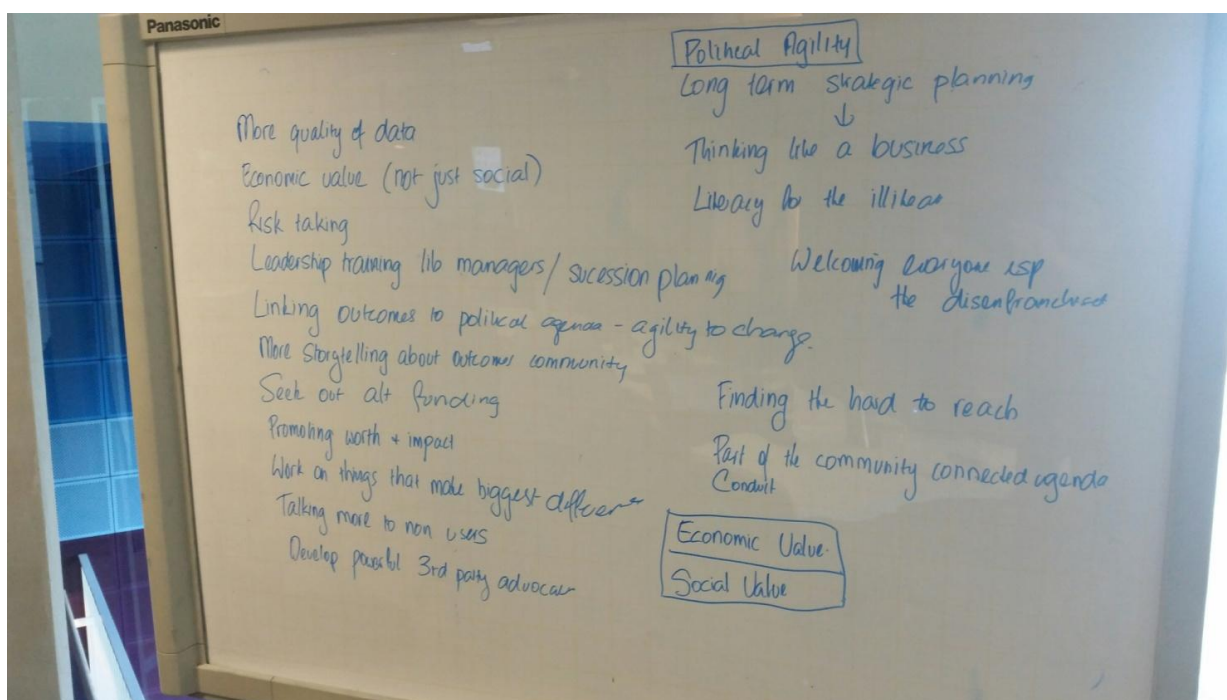 Panasonic
More quality of data
Economic value (not just social)
Risk taking
Leadership training lib managers / sucession planning
Linking outcomes to political agenda - agility to change.
More storytelling about outcomes community
Seek out alt funding
Promoting worth + impact
Work on things that make biggest
Talking more to non users
Develop powerful 3rd party
Political Agility
Long term strategic planning
↓
Thinking like a business
Literacy for the
Welcoming everyone esp
the
Finding the hard to reach
Part of the community connected agenda
Conduit
Economic Value.
Social Value